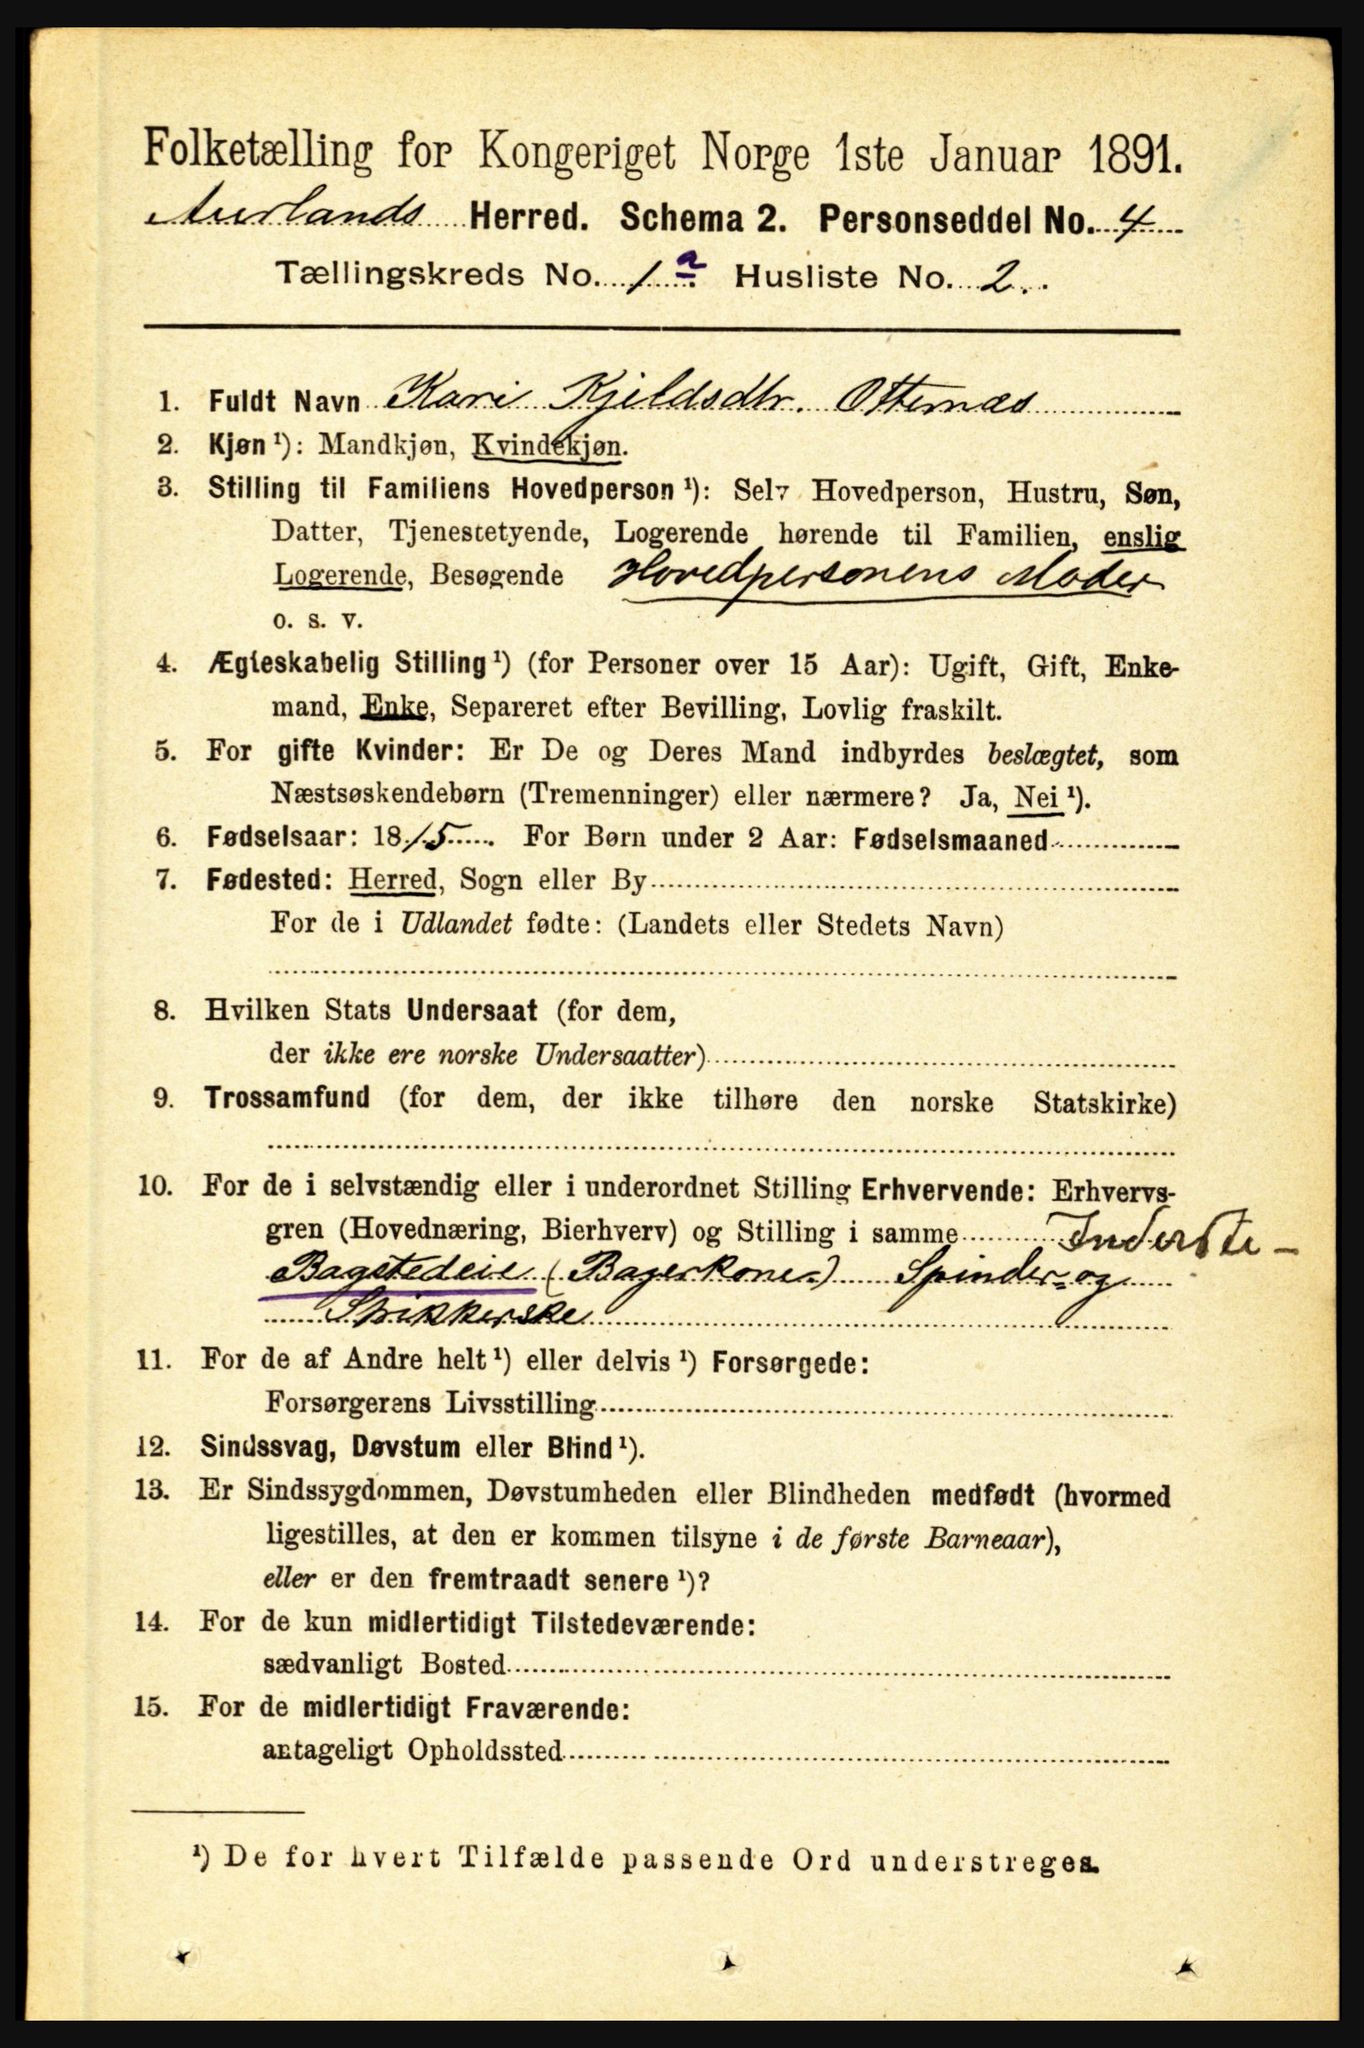 Folketælling for Kongeriget Norge 1ste Januar 1891.
Aurlands Herred. Schema 2. Personseddel No. 4
Tællingskreds No. 1 a. Husliste No. 2.
1. Fuldt Navn Kari Kjeldsdtr. Otternæs
2. Kjøn ¹): Mandkjøn, Kvindekjøn.
3. Stilling til Familiens Hovedperson ¹): Selv Hovedperson, Hustru, Søn,
Datter, Tjenestetyende, Logerende hørende til Familien, enslig
Logerende, Besøgende Hovedpersonens Moder
o. s. v.
4. Ægteskabelig Stilling ¹) (for Personer over 15 Aar): Ugift, Gift, Enke-
mand, Enke, Separeret efter Bevilling, Lovlig fraskilt.
5. For gifte Kvinder: Er De og Deres Mand indbyrdes beslægtet, som
Næstsøskendebørn (Tremenninger) eller nærmere? Ja, Nei ¹).
6. Fødselsaar: 1815. For Børn under 2 Aar: Fødselsmaaned
7. Fødested: Herred, Sogn eller By
For de i Udlandet fødte: (Landets eller Stedets Navn)
8. Hvilken Stats Undersaat (for dem,
der ikke ere norske Undersaatter)
9. Trossamfund (for dem, der ikke tilhøre den norske Statskirke)
10. For de i selvstændig eller i underordnet Stilling Erhvervende: Erhvervs-
gren (Hovednæring, Bierhverv) og Stilling i samme Inderste -
Bagstedeie (Bagerkone) Spinder- og
Strikkerske
11. For de af Andre helt ¹) eller delvis ¹) Forsørgede:
Forsørgerens Livsstilling
12. Sindssvag, Døvstum eller Blind ¹).
13. Er Sindssygdommen, Døvstumheden eller Blindheden medfødt (hvormed
ligestilles, at den er kommen tilsyne i de første Barneaar),
eller er den fremtraadt senere ¹)?
14. For de kun midlertidigt Tilstedeværende:
sædvanligt Bosted
15. For de midlertidigt Fraværende:
antageligt Opholdssted
¹) De for hvert Tilfælde passende Ord understreges.